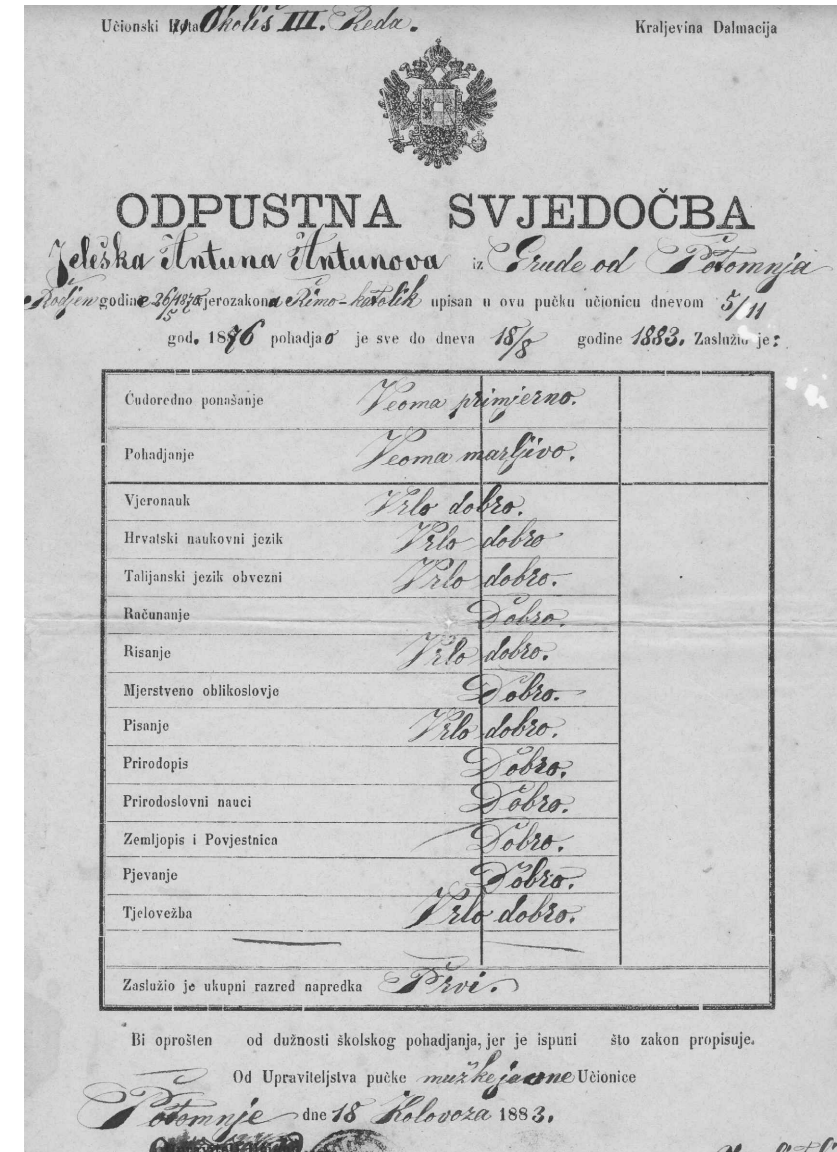 Učionski Okoliš III. Reda. Kraljevina Dalmacija
ODPUSTNA SVJEDOČBA
Jeleška Antuna Antunova iz Grude od Potomnja
Rodjen godine 26/5 1870 vjerozakona Rimo-katolik upisan u ovu pučku učionicu dnevom 5/11
god. 1876 pohadjao je sve do dneva 18/8 godine 1883. Zaslužio je:
Ćudoredno ponašanje Veoma primjerno.
Pohadjanje Veoma marljivo.
Vjeronauk Vrlo dobro.
Hrvatski naukovni jezik Vrlo dobro
Talijanski jezik obvezni Vrlo dobro.
Računanje Dobro.
Risanje Vrlo dobro.
Mjerstveno oblikoslovje Dobro.
Pisanje Vrlo dobro.
Prirodopis Dobro.
Prirodoslovni nauci Dobro.
Zemljopis i Povjestnica Dobro.
Pjevanje Dobro.
Tjelovežba Vrlo dobro.
Zaslužio je ukupni razred napredka Prvi.
Bi oprošten od dužnosti školskog pohadjanja, jer je ispuni što zakon propisuje.
Od Upraviteljstva pučke mužke javne Učionice
Potomnje dne 18 Kolovoza 1883.